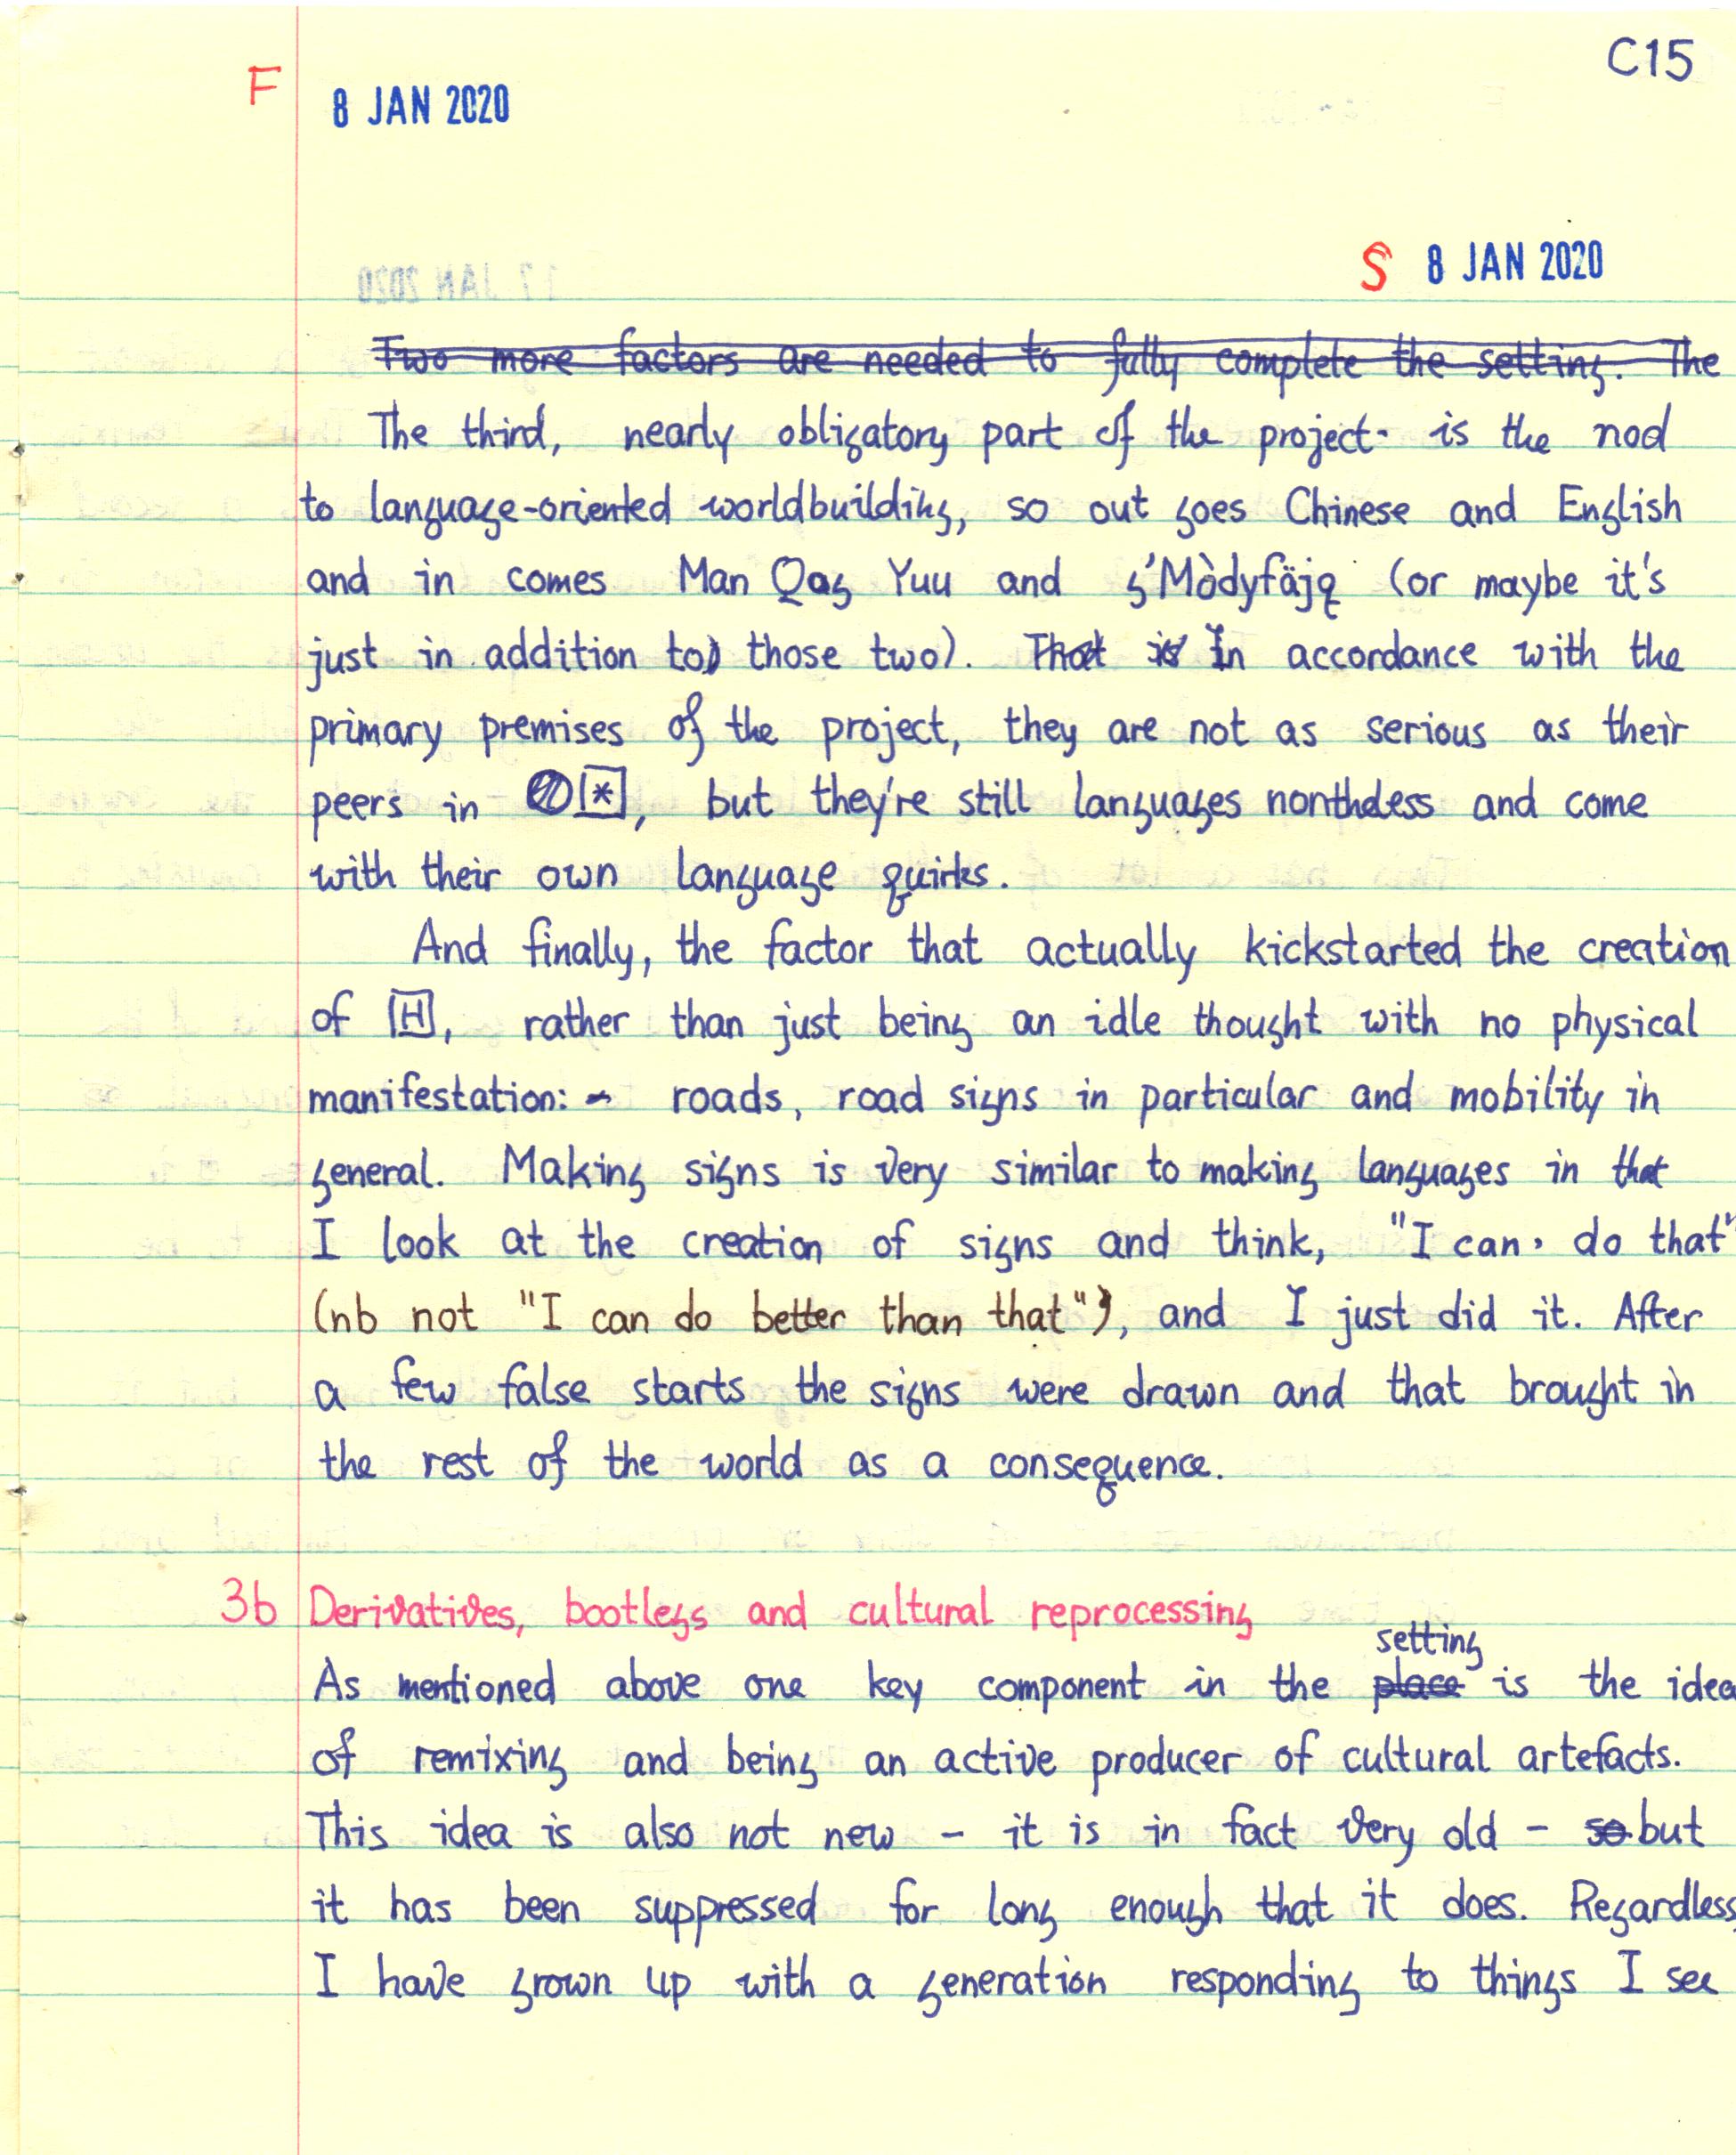 C15
F 8 JAN 2020
S 8 JAN 2020
Two more factors are needed to fully complete the setting. The
The third, nearly obligatory part of the project is the nod
to language-oriented worldbuilding, so out goes Chinese and English
and in comes Man Qag Yuu and g'Mòdyfäjq (or maybe it's
just in addition to those two). That is In accordance with the
primary premises of the project, they are not as serious as their
peers in [*], but they're still languages nontheless and come
with their own language quirks.
And finally, the factor that actually kickstarted the creation
of [H], rather than just being an idle thought with no physical
manifestation: roads, road signs in particular and mobility in
general. Making signs is very similar to making languages in that
I look at the creation of signs and think, "I can do that"
(nb not "I can do better than that"), and I just did it. After
a few false starts the signs were drawn and that brought in
the rest of the world as a consequence.
3b Derivatives, bootlegs and cultural reprocessing
setting
As mentioned above one key component in the place is the idea
of remixing and being an active producer of cultural artefacts.
This idea is also not new – it is in fact very old – so but
it has been suppressed for long enough that it does. Regardless,
I have grown up with a generation responding to things I see